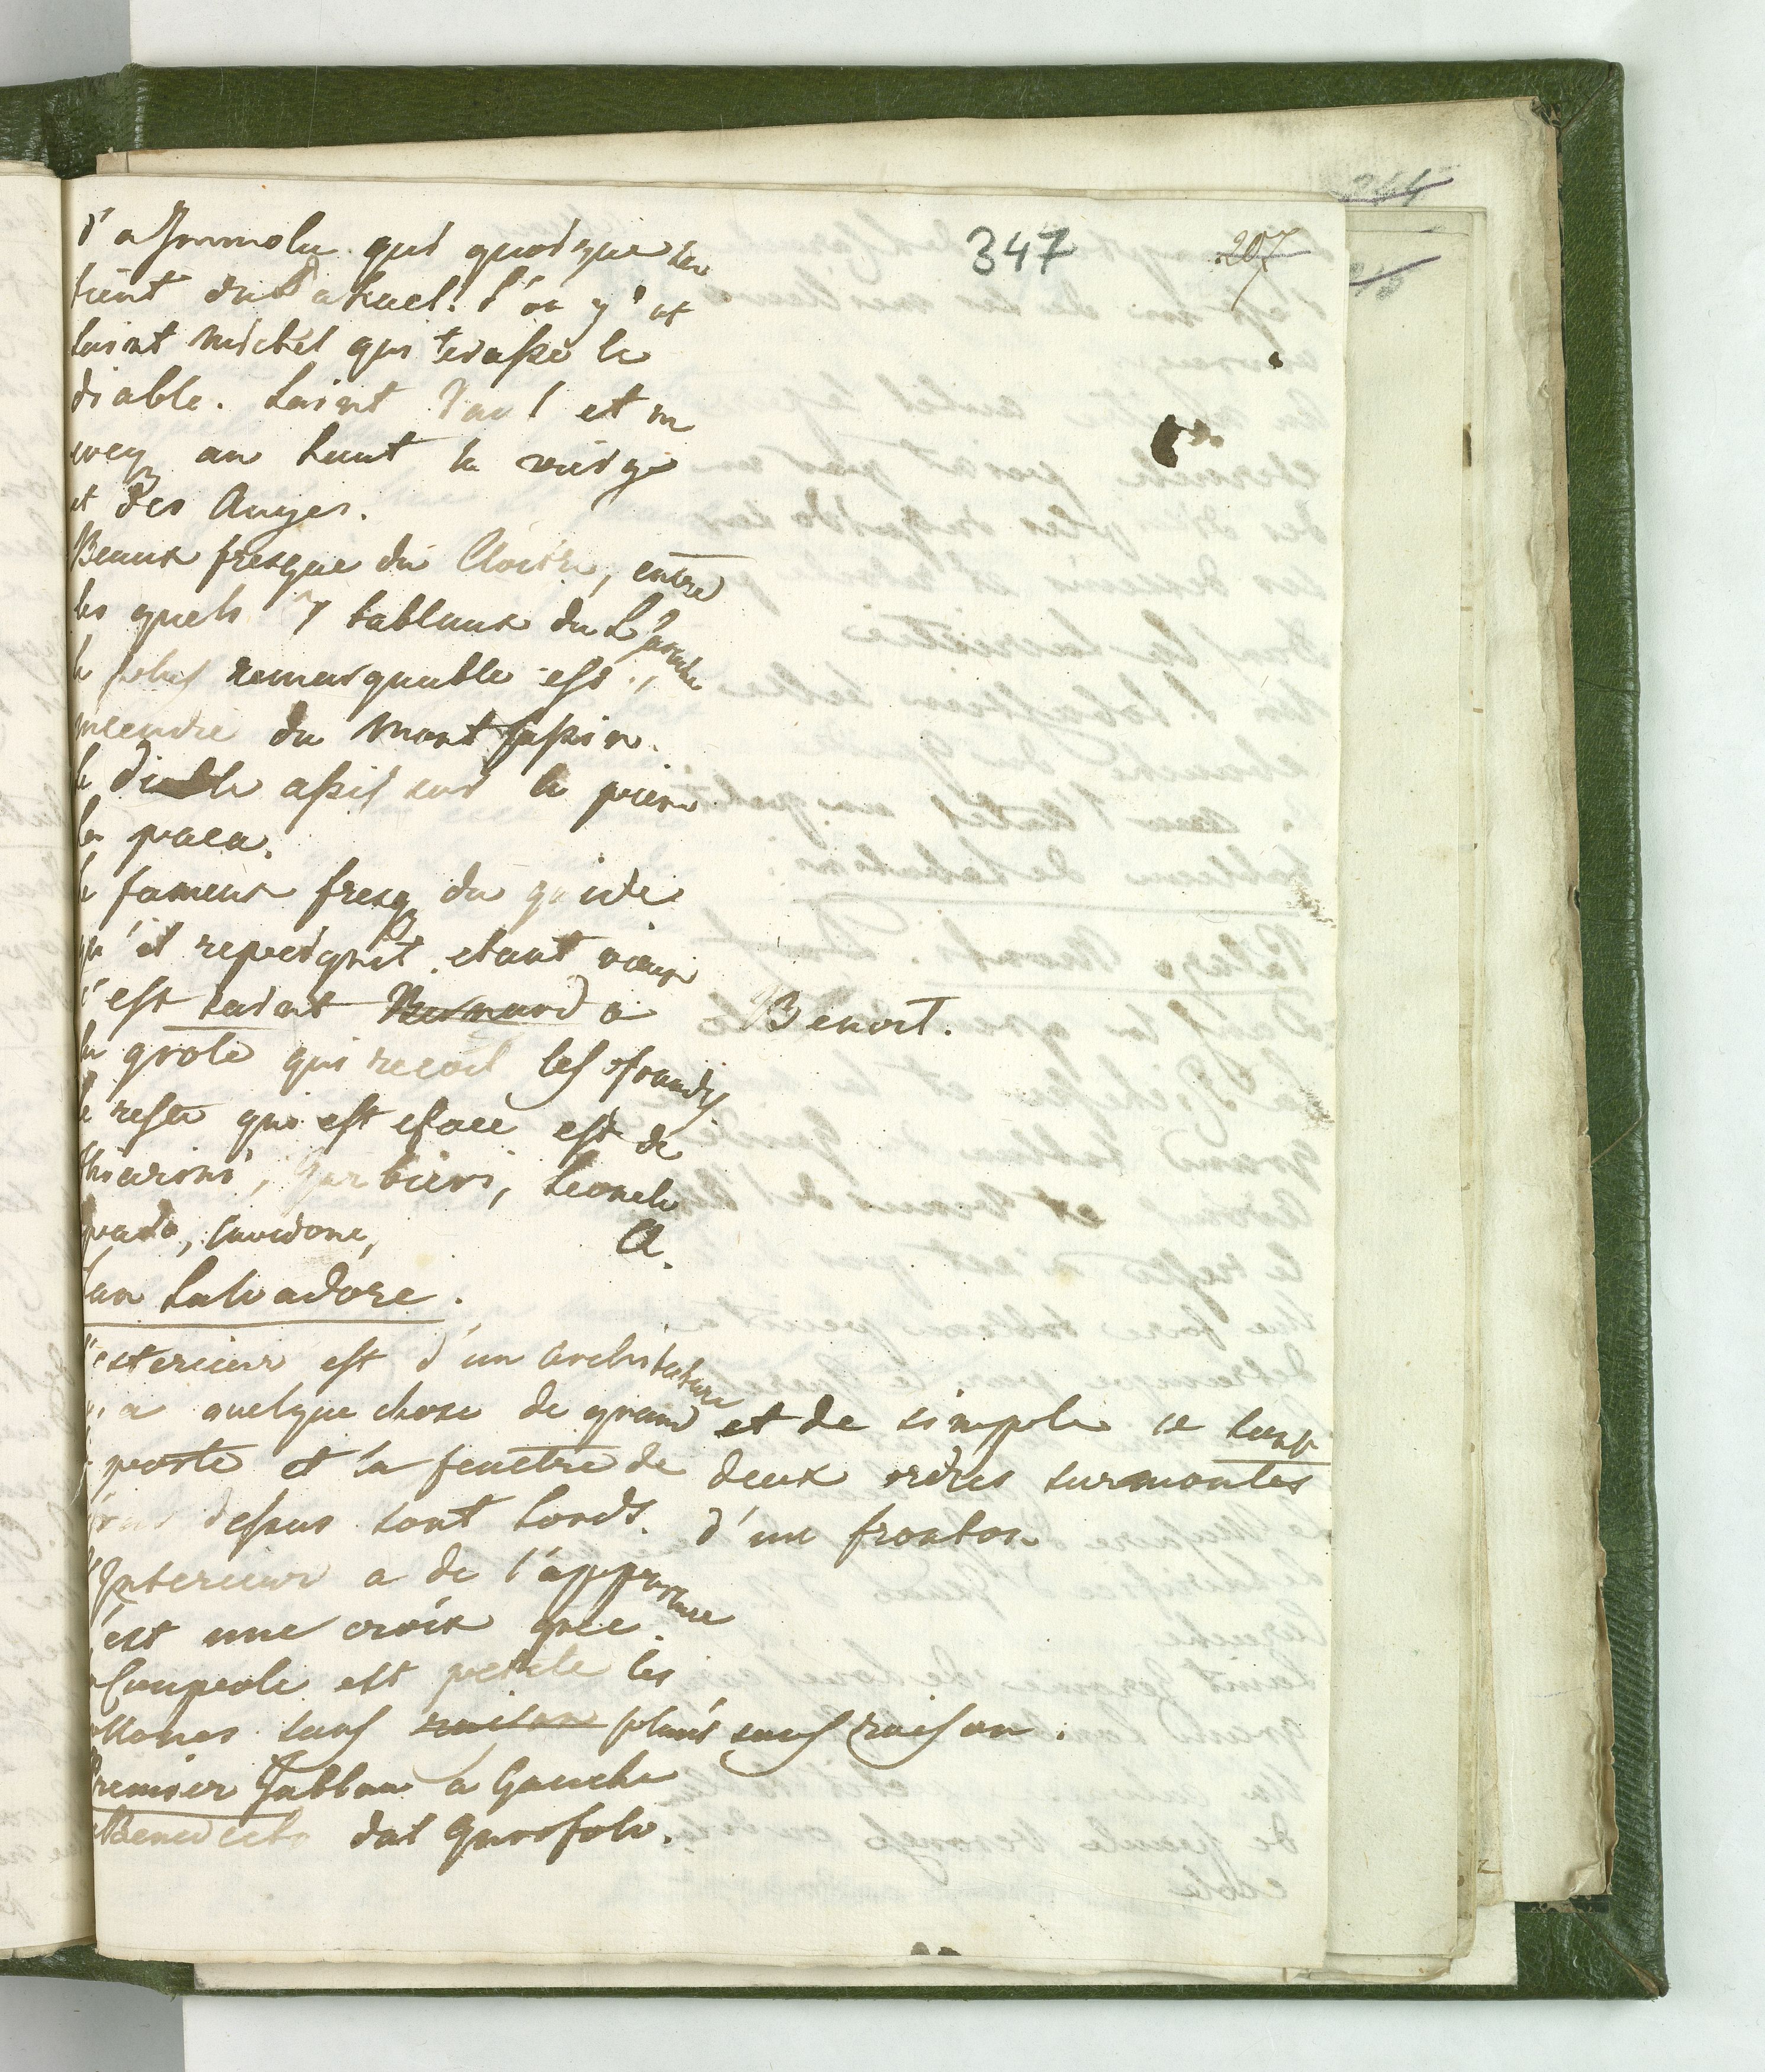 347 207
244
d'a Jnnmola qui quoique
tient du Rahael. l'on y vt
Saint Michel qui terasse le
diable. Saint Paul et un
eveq an haut la vierge
et des Anges.
Beaux fresque du Cloitre, entre
les quels 7 tableaux du L.
le plus remarquable est
incendie du Mont Cassin.
le diable assis sur la piere
la paca.
le fameux fresq du guide
qu'il repeignit etant vieux
c'est saint Bernard a Benoit.
la grote qui recoit les ofrandes
le reste qui est eface est de
Garbieri, Leonelo
Spada, Cavedone, A.
San Salvadore.
l'exterieur est d'un architecture
qui a quelque chose de grand et de simple
porte et la fenetre de deux ordres surmontes
dessus sont lourds. d'un fronton
l'Interieur a de l'apparence
c'est une croix grec.
Coupole est petite les
colonnes sans raison plais sans raison.
Premier Tableau a Gauche
Benedecto dal Garofolo.